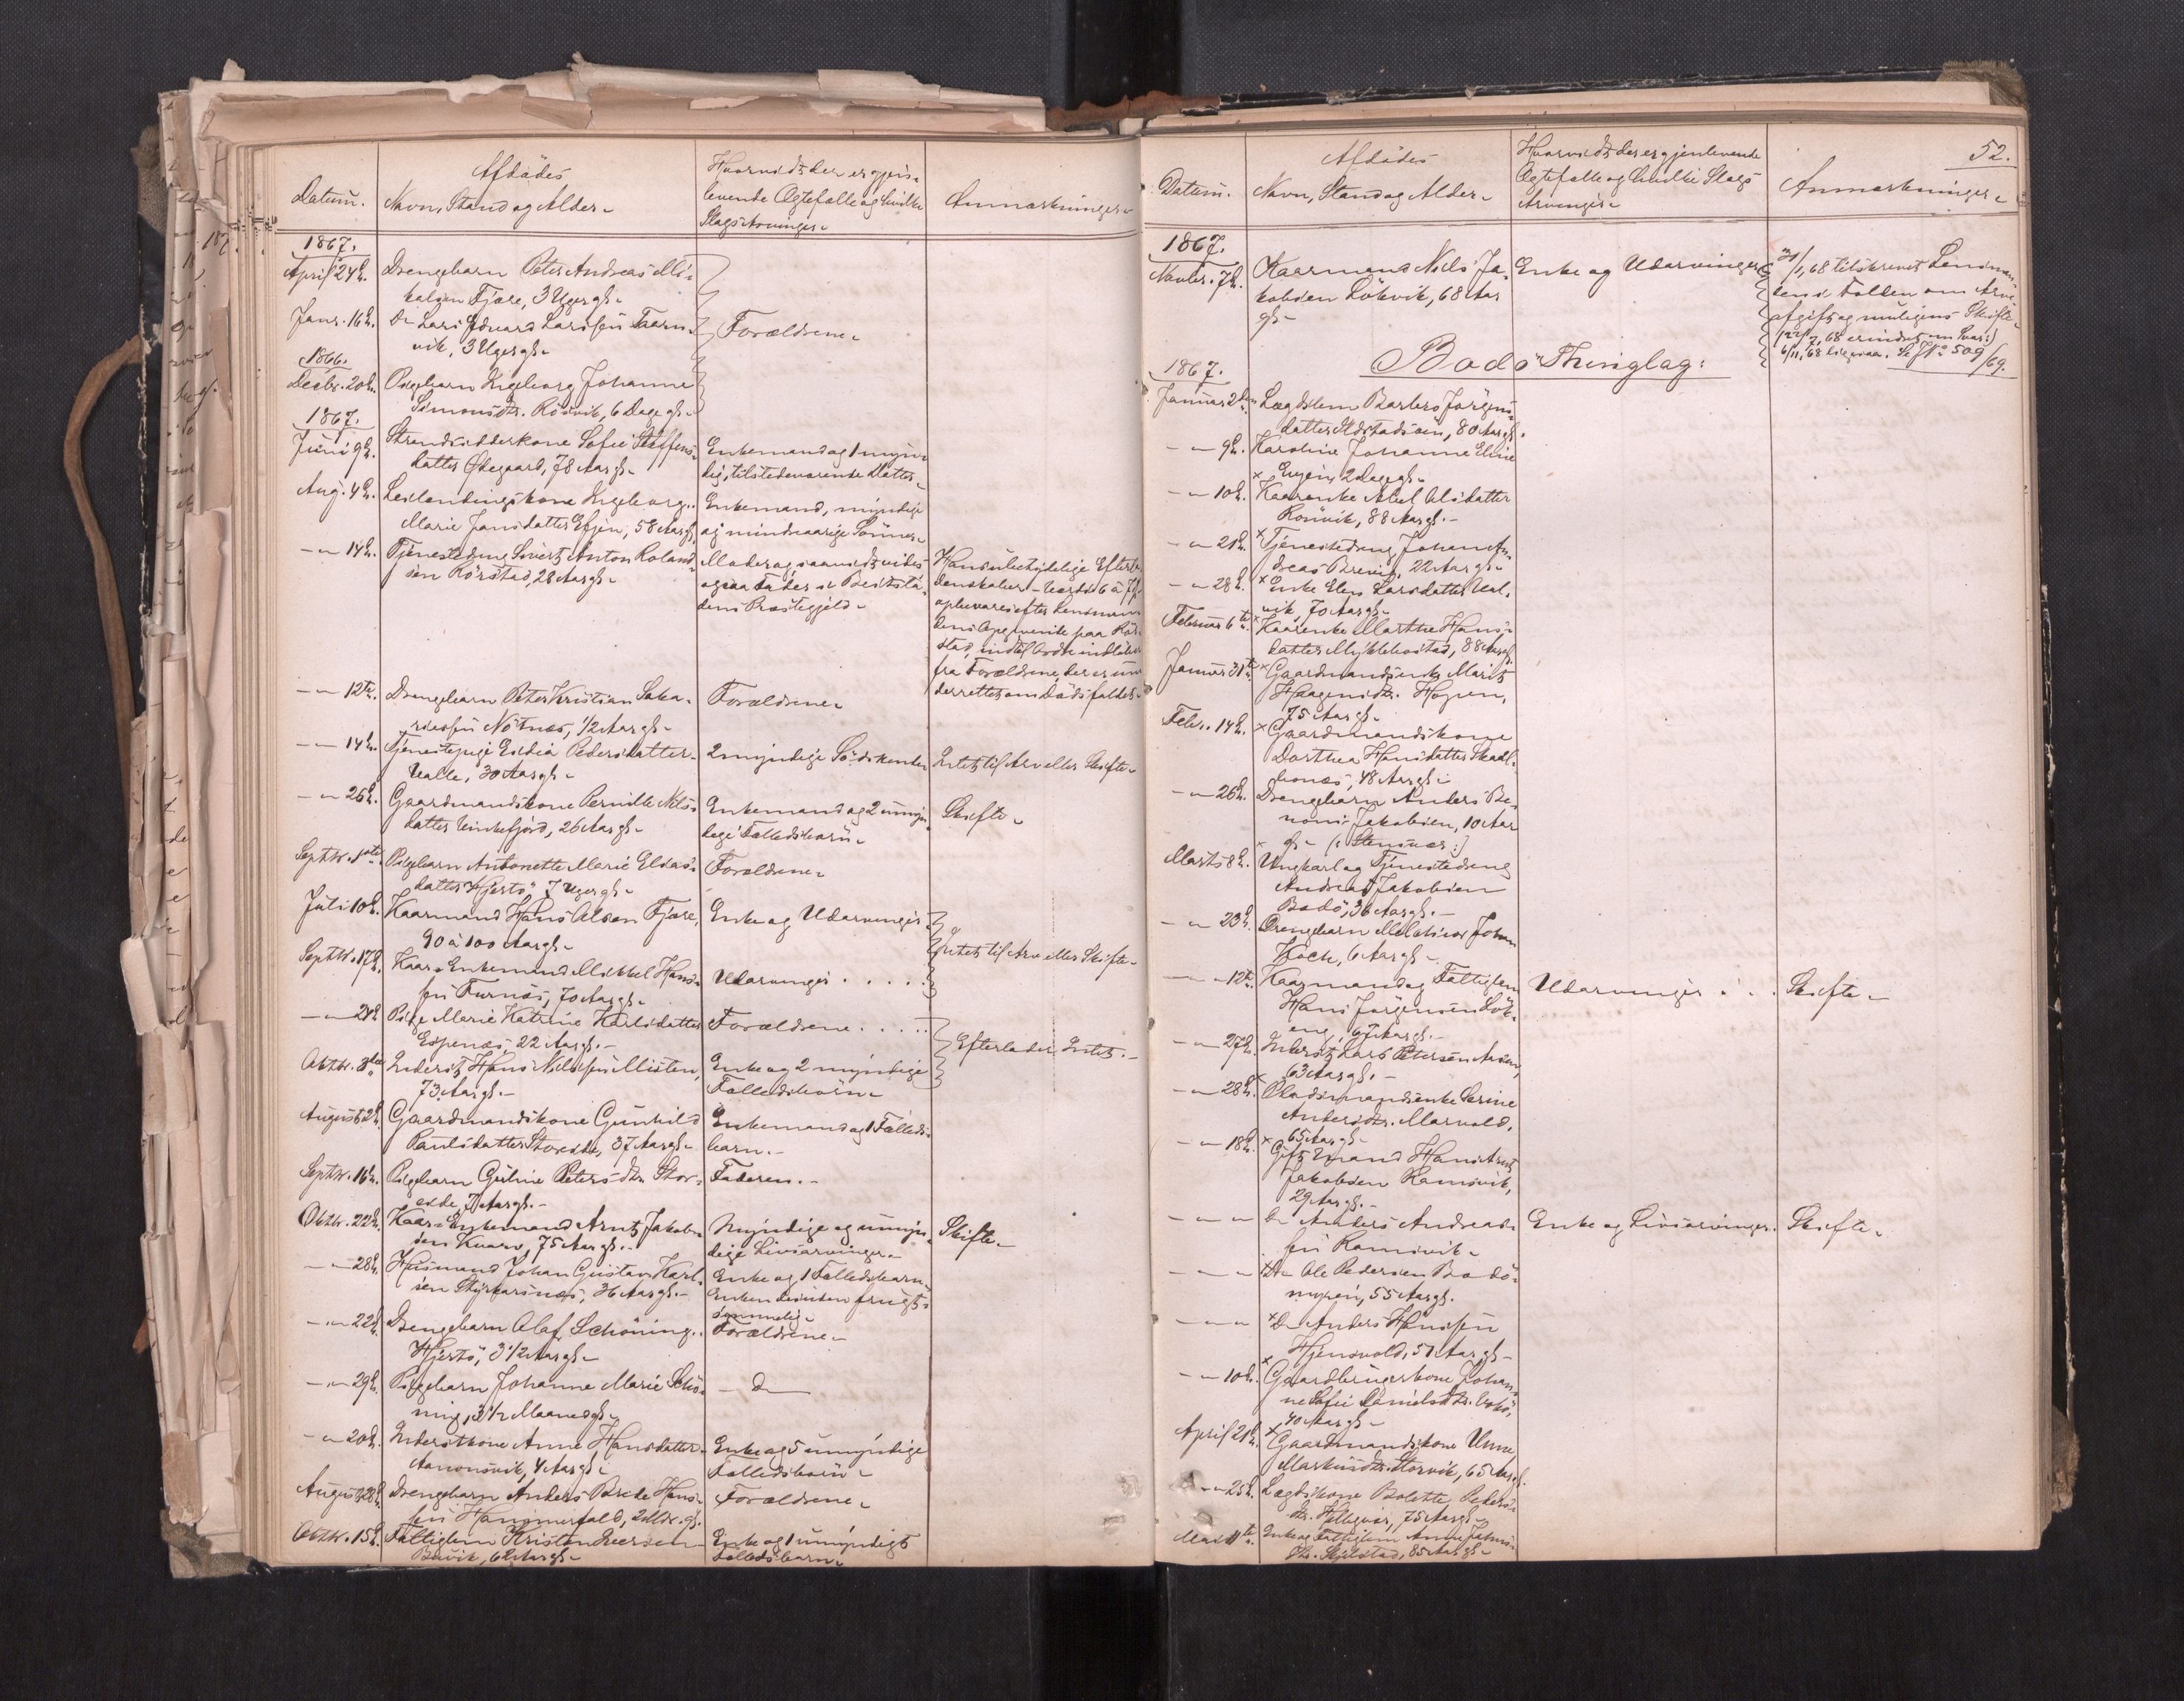 Datum.
Afdödes
Navn, Stand og Alder
Hvorvidt der er gjen-
levende Ægtefælle og hvilke
Slags Arvinger
Anmærkninger
1867.
April 24de.
Drengebarn Peter Andreas Mi-
kalsen Fjære, 3 Uger gl.
Janr. 16de.
Do Lars Edvard Larssen Taarn-
vik, 3 Uger gl.
Forældrene
1866.
Decbr. 20de.
Pigebarn Ingeborg Johanne
Simonsdtr. Rösvik, 6 Dage gl.
1867.
Juni 9de.
Strandsidderkone Sofie Steffens-
datter Ødegaard, 78 Aar gl.
Enkemand og 1 myn-
dig, tilstedeværende Datter
Aug. 4de.
Leilændingskone Ingeborg
Marie Jansdatter Efjen, 58 Aar gl.
Enkemand, myndige
og mindreaarige Sönner
— " 14de.
Tjenestedreng Sivert Anton Roland-
sen Rörstad, 28 Aar gl.
Moder og, saavidt vides
ogsaa Fader i Beitsta-
dens Præstegjeld
Hans ubetydelige Efterla-
denskaber - værdi 6 a 7
opbevares efter Lensman-
dens Opgivende paa Rör-
stad, indtil Ordre indlöber
fra Forældrene, der er un-
derrettet om Dödsfaldet
— " 12te.
Drengebarn Peter Kristian Saka-
riassen Nötnes, 1/2 Aar gl.
Forældrene
— " 14de.
Tjenestepige Endia Pedersdatter
Valle, 30 Aar gl.
2 myndige Södskende
Intet til Arv eller Skifte
— " 26de.
Gaardmandskone Pernille Nils-
datter Vinkefjord, 26 Aar gl.
Enkemand og 2 umyn-
dige Fælledsbörn
Skifte
Septbr. 1ste.
Pigebarn Antonette Marie Elias-
datter Hjertö, 7 Uger gl.
Forældrene
Juli 10de.
Kaarmand Hans Olsen Fjære,
90 à 100 Aar gl.
Enke og Udarvinger
Intet til Arv eller Skifte
Septbr. 17de.
Kaar-Enkemand Mikkel Hans-
sen Furnes, 70 Aar gl.
Udarvinger . . . . .
— " 21de.
Pige Marie Katrine Karlsdatter
Espenes, 22 Aar gl.
Forældrene . . . . .
Efterlader Intet.
Oktbr. 3die.
Inderst Hans Nilssen Misten,
73 Aar gl.
Enke og 2 myndige
Fælledsbörn
August 2de.
Gaardmandskone Gunhild
Paulsdatter Storeide, 37 Aar gl.
Enkemand og 1 Fælleds-
barn.
Septbr. 16de.
Pigebarn Guline Peters-dtr. Stor-
eide, 7 Aar gl.
Faderen.
Oktbr. 22de.
Kaar-Enkemand Arnt Jakob-
sen Kvarv, 75 Aar gl.
Myndige og umyn-
dige Livsarvinger
Skifte
— " 28de.
Husmand Johan Gustav Karl-
sen Styrkesnes, 36 Aar gl.
Enke og 1 Fælledsbarn,
Enken desuden frugt-
sommelig
— " 22de.
Drengebarn Olaf Schöning
Hjertö, 3 1/2 Aar gl.
Forældrene
— " 29de.
Pigebarn Johanne Marie Schö-
ning, 3 1/2 Maaned gl.
— Do —
— " 20de.
Inderstkone Anne Hansdatter
Aanonsvik, 4 Aar gl.
Enke og 5 umyndige
Fælledsbörn
August 28de.
Drengebarn Anders Brede Hans-
sen Hammerfald, 2 Mdr. gl.
Forældrene
Oktbr. 15de.
Fattiglem Kristen Iversen
Bövik, 62 Aar gl.
Enke og 1 umyndigt
Fælledsbarn
52.
Datum.
Afdödes
Navn, Stand og Alder
Hvorvidt der er gjenlevende
Ægtefælle og hvilke Slags
Arvinger
Anmærkninger
1867.
Novbr. 7de.
Kaarmand Nils Ja-
kobsen Lökvik, 68 Aar
gl.
Enke og Udarvinger
/1,68 tilskrevet Lensman-
den i Folden om Arve-
afgift og muligens Skifte
/7,68 erindret om Svar.)
6/11,68 ligesaa. Se J.No 509/69.
Bodö Thinglag:
1867.
Januar 2den.
Lægdslem Barbro Jörgens-
datter Ildstadöen, 80 Aar gl.
— " 9de.
Karoline Johanne Eline
Engen, 2 Dage gl.
— " 10de.
× Kaarenke Abel Olsdatter
Rönvik, 88 Aar gl.
— " 21de.
× Tjenestedreng Johan An-
dreas Brevig, 22 Aar gl.
— " 28de.
× Enke Elen Larsdatter Val-
vik, 70 Aar gl.
Februar 6te.
× Kaarenke Marthe Hans-
datter Myklebostad, 88 Aar gl.
Januar 31te.
× Gaardmandsenke Marit
Haagensdtr. Hopen,
75 Aar gl.
Febr. 14de.
× Gaardmandskone
Dorthea Hansdatter Skaal-
bones, 48 Aar gl.
— " 26de.
Drengebarn Anders Be-
noni Jakobsen, 10 Aar
gl. (: Stensnes :)
Marts 8de.
× Ungkarl og Tjenestedreng
Andreas Jakobsen
Bodö, 36 Aar gl.
— " 23de.
Drengebarn Melchior Johan
Koch, 6 Aar gl.
— " 12te.
Kaarmand og Fattiglem
Hans Jörgensen Lök-
eng, 67 Aar gl.
Udarvinger . . .
Skifte
— " 27de.
Inderst Lars Petersen Asen,
63 Aar gl.
— " 28de.
× Pladsmandsenke Serine
Andersdtr. Marvold,
65 Aar gl.
— " 18de.
× Gift Mand Hans Arnt
Jakobsen Ramsvik,
29 Aar gl.
— " —
Do Anders Andreas-
sen Ramsvik
Enke og Livsarvinger.
Skifte
— " —
× Do Ole Pedersen Bodö-
myren, 55 Aar gl.
— " —
× Do Anders Hanssen
Hjernvold, 51 Aar gl.
— " 10de.
× Gaardbrugerkone Johan-
ne Sofie Danielsdtr.
40 Aar gl.
April 21de.
× Gaardmandskone Unne
Markusdtr. Storvik, 65 Aar gl.
— " 25de.
Lægdskone Bolette Peders-
dtr. Helligvær, 75 Aar gl.
Mai 11te.
Enke og Fattiglem Anne Johns-
dtr. Skjelstad, 85 Aar gl.